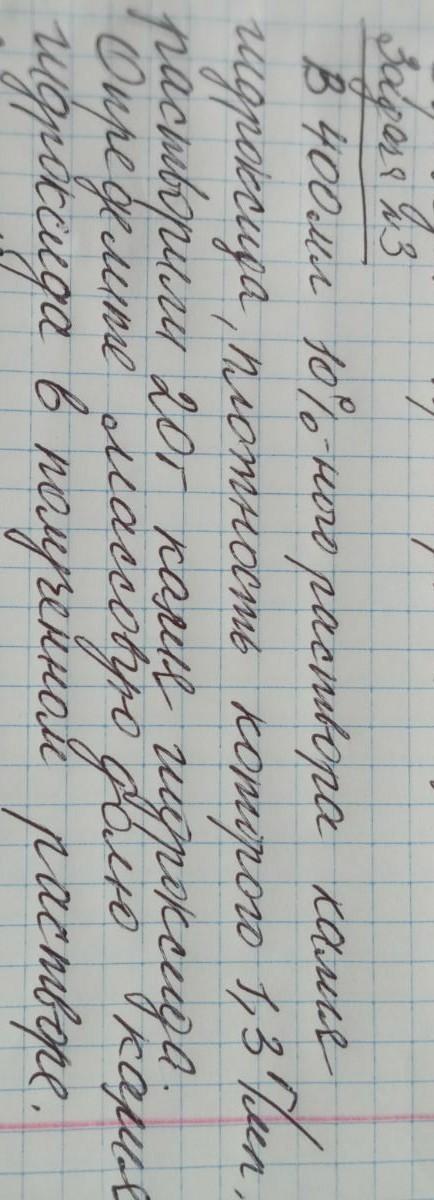 Задача №3
В 400мл 10%-ного раствора калия
гидроксида, плотность которого 1,3 г/мл,
растворили 20г калия гидроксида.
Определите массовую долю калия
гидроксида в полученном растворе.